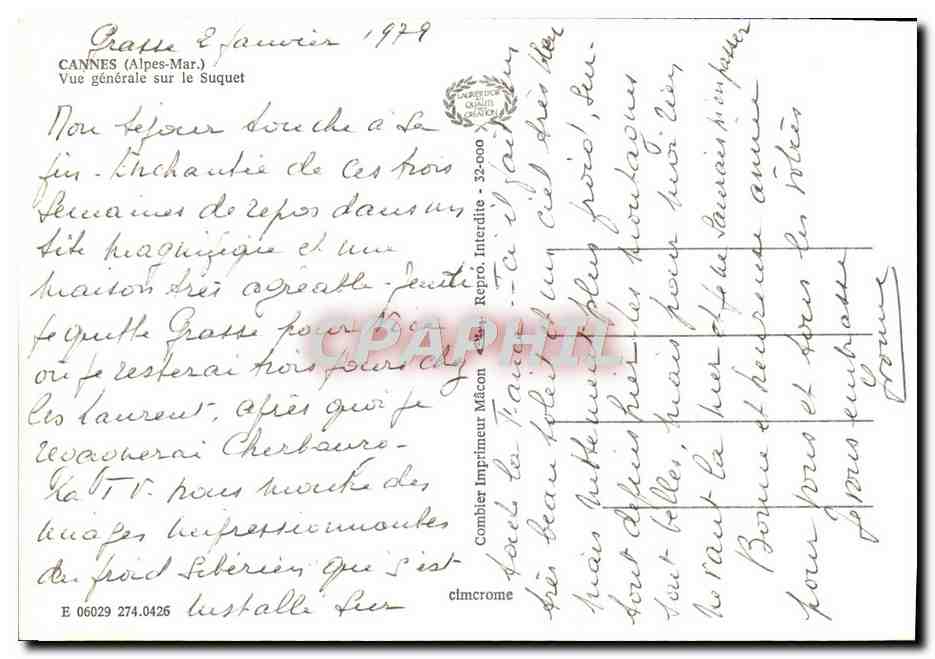 Grasse 2 Janvier 1979
CANNES (Alpes-Mar.)
Vue générale sur le Suquet
LAURIER D'OR
DE QUALITÉ
CRÉATION
Mon séjour touche à sa
fin - Enchantée de ces trois
semaines de repos dans un
site magnifique et une
maison très agréable - Jeudi
je quitte Grasse pour
où je resterai trois jours chez
les Laurent, après quoi je
regagnerai Cherbourg -
La TV. nous montre des
images impressionnantes
du froid Sibérien qui s'est
installé sur
E 06029 274.0426
Combier Imprimeur Mâcon Repro. Interdite - 32-000
cimcrome
toute la France -- Ici il fait un
très beau soleil et un ciel très bleu
mais nettement plus froid, sur-
tout depuis hier, les montagnes
sont belles, mais pour moi rien
ne vaut la mer et je ne saurais m'en passer
Bonne et heureuse année
pour vous et tous les vôtres
Je vous embrasse
CPAPHIL